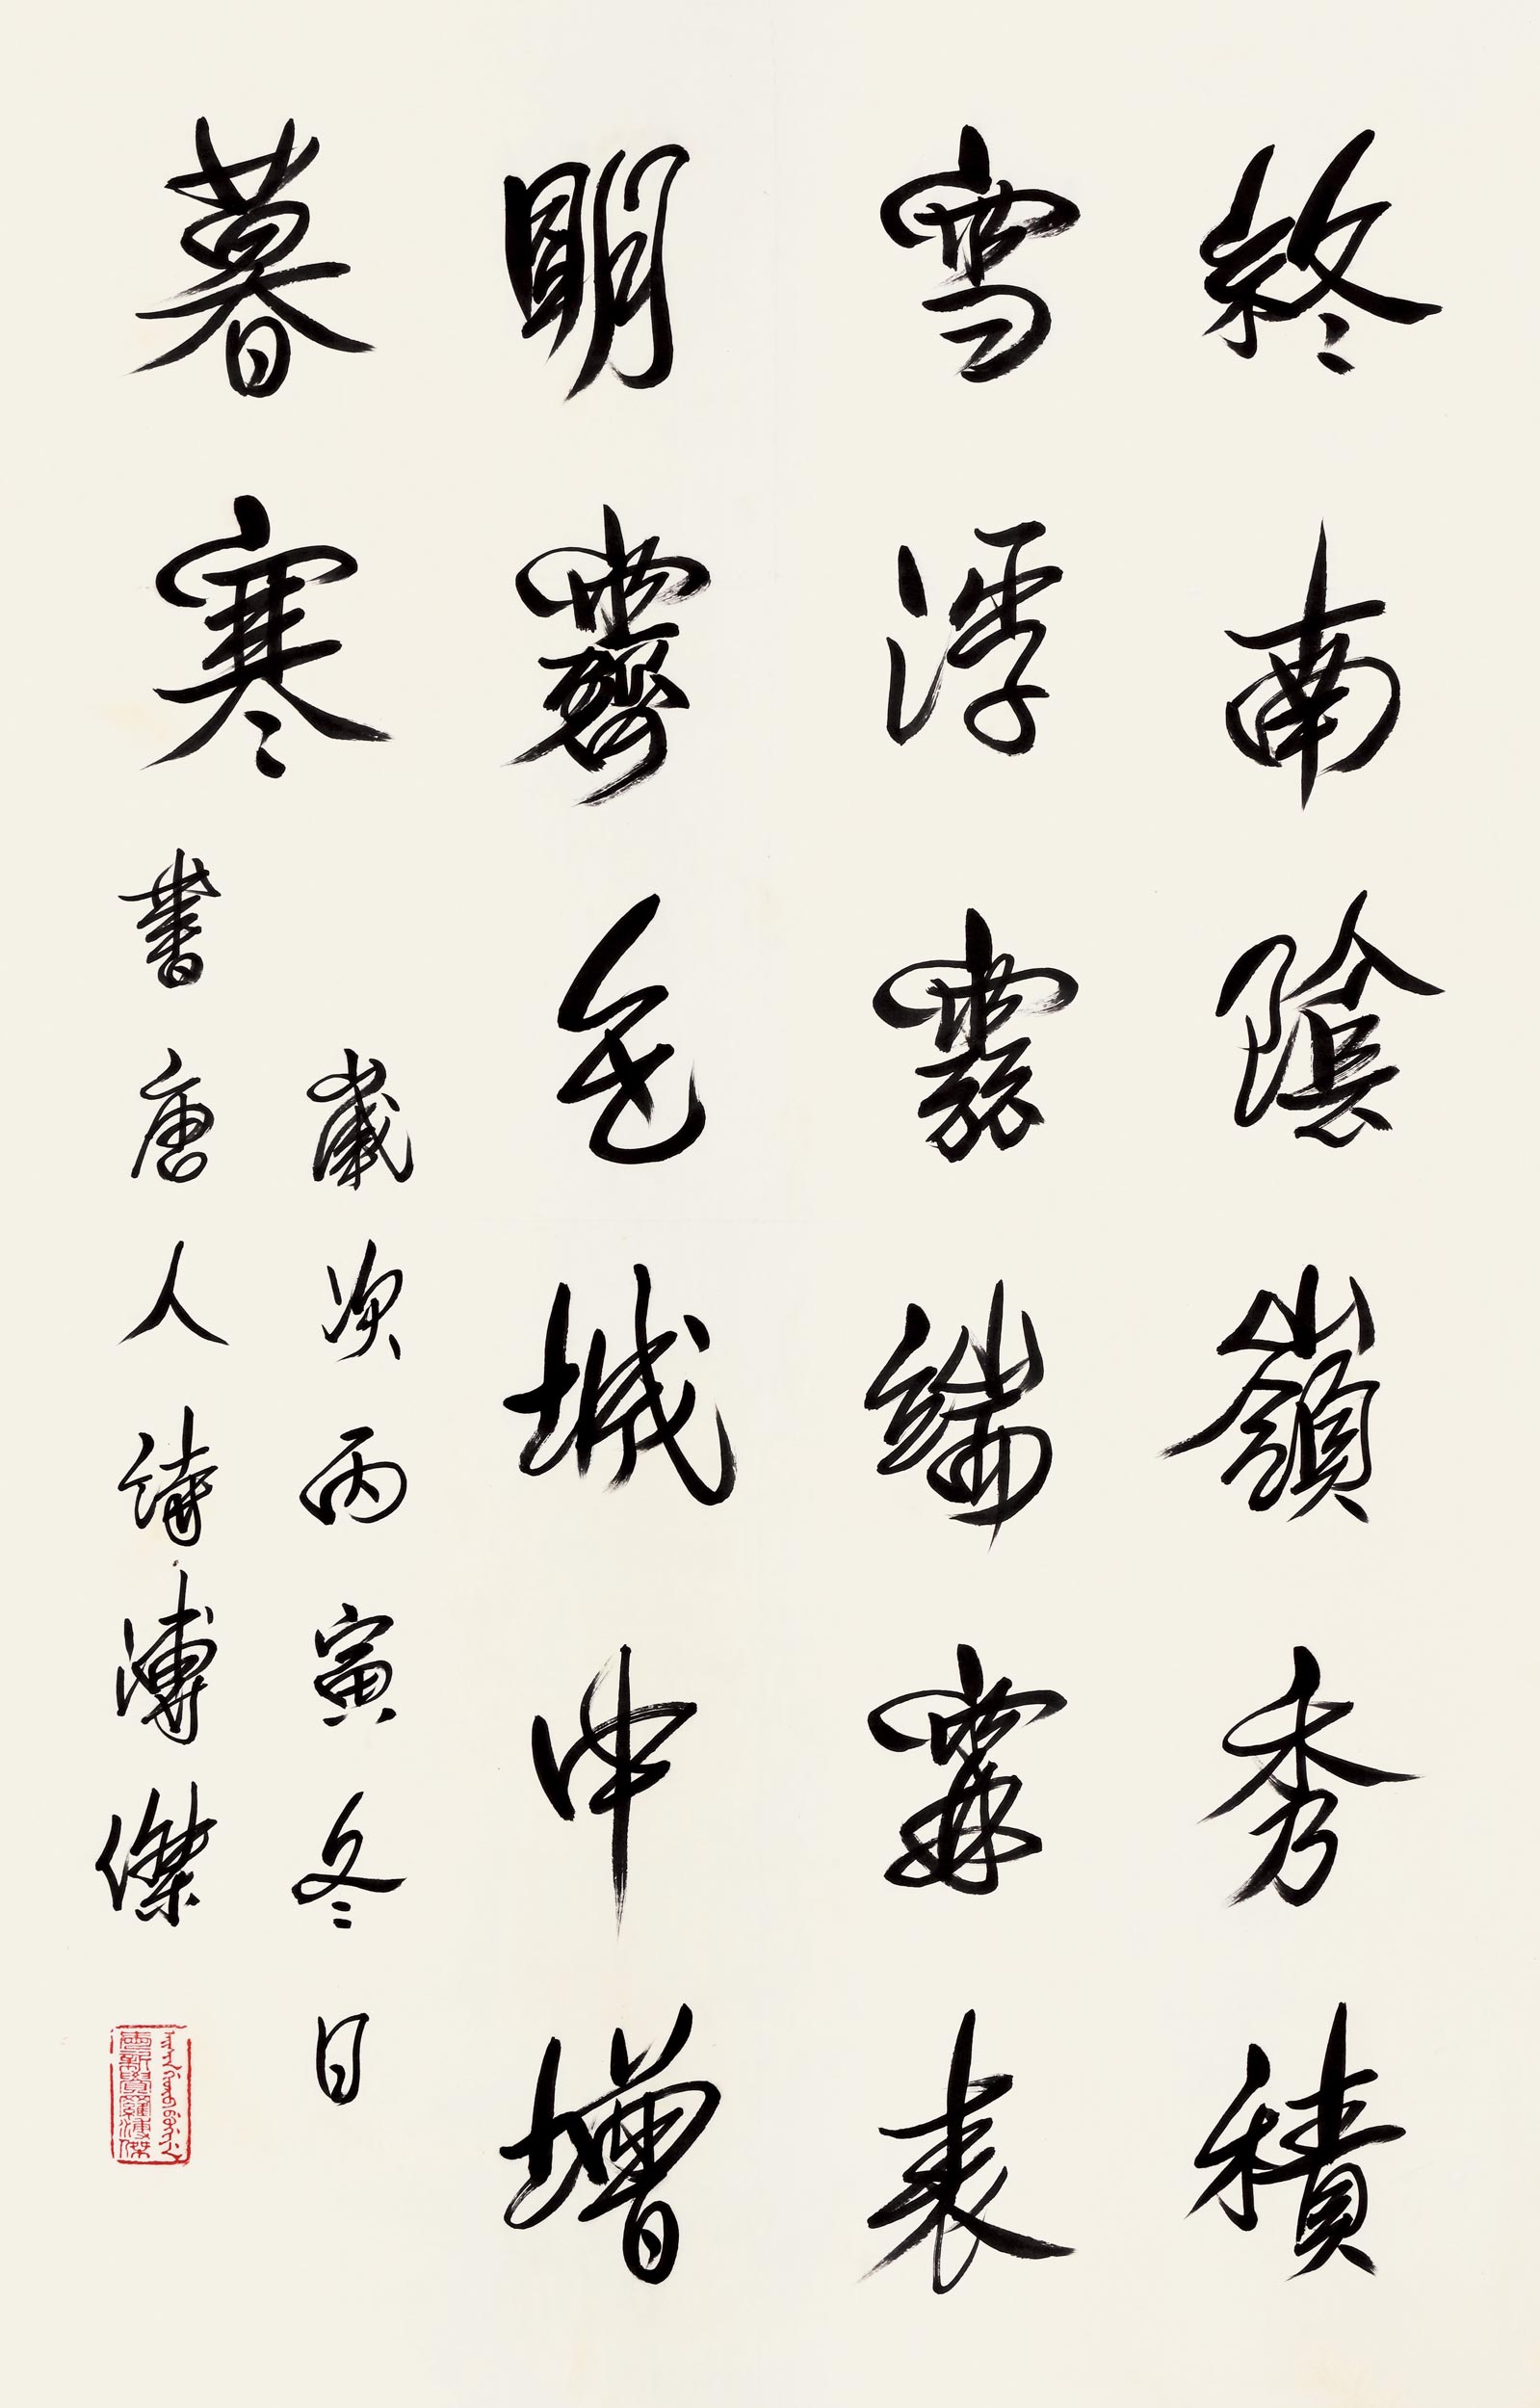 終南陰嶺秀積
雪浮雲端表
明霽色城中增
暮寒
歲次丙寅冬日
書唐人詩溥傑
愛新覺羅溥傑